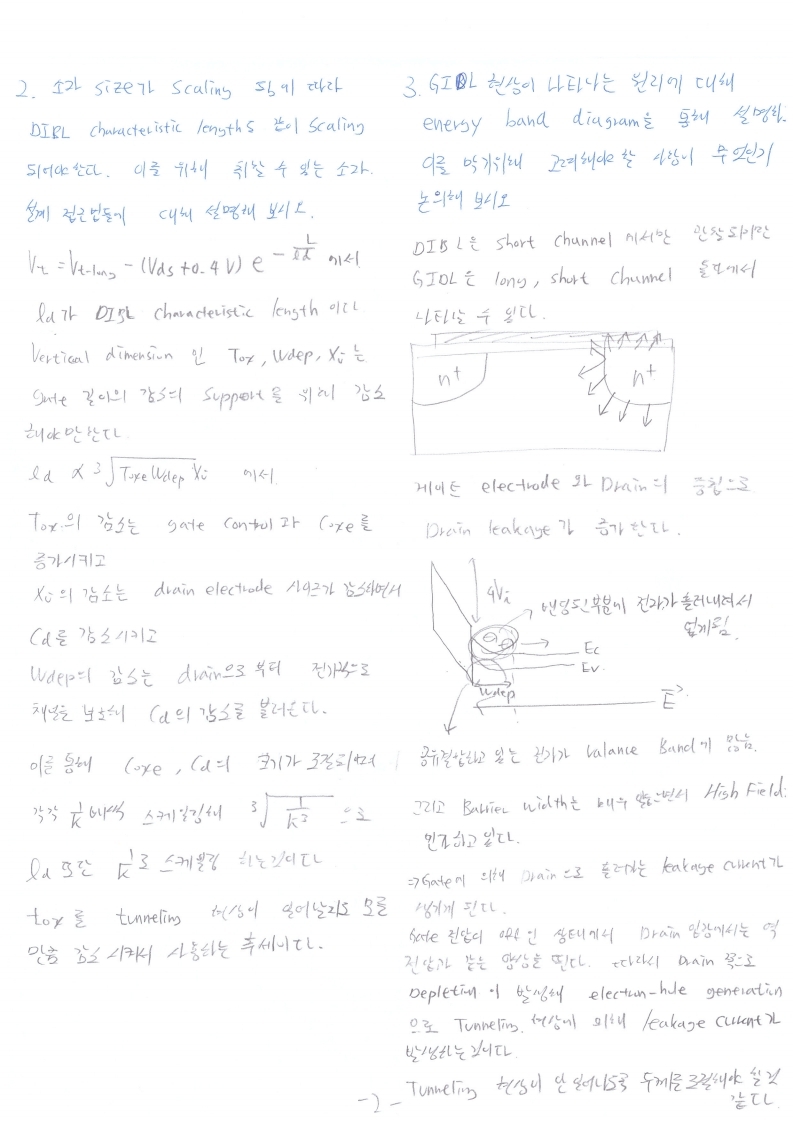 2. 소자 size가 scaling 됨에 따라
DIBL characteristic length도 같이 scaling
되어야 한다. 이를 위해 취할 수 있는 소자
설계 접근법들에 대해 설명해 보시오.
Vt = Vt-long - (Vds + 0.4V) e^(-L/ld) 에서
ld가 DIBL characteristic length 이다.
Vertical dimension 인 Tox, Wdep, Xj는
gate 길이의 감소의 support를 위해 감소
해야만 한다.
ld ∝ ³√(Toxe Wdep Xj) 에서
Tox의 감소는 gate control과 Coxe를
증가시키고
Xj의 감소는 drain electrode 사이즈가 감소하면서
Cd를 감소시키고
Wdep의 감소는 drain으로 부터 전기적으로
채널을 보호해 Cd의 감소를 불러온다.
이를 통해 Coxe, Cd의 크기가 조절되며
각각 1/k 배씩 스케일링해 ³√(1/k³) 으로
ld 또한 1/k로 스케일링 하는것이다
tox를 tunneling 현상이 일어날지도 모를
만큼 감소시켜서 사용하는 추세이다.
3. GIDL 현상이 나타나는 원리에 대해
energy band diagram을 통해 설명하고
이를 막기위해 고려해야 할 사항이 무엇인가
논의해 보시오
DIBL은 short channel 에서만 관찰되지만
GIDL은 long, short channel 둘모에서
나타날 수 있다.
n+ n+
게이트 electrode 와 Drain의 중첩으로
Drain leakage가 증가 한다.
qVi
밴딩된 부분에 전자가 흘러내려서
쌓이게됨.
Ec
Ev
Wdep
E
공유결합하고 있는 전자가 Valance Band에 많음.
그리고 Barrier width는 매우 얇으면서 High Field:
인가하고 있다.
⇒ Gate에 의해 Drain으로 흘러가는 leakage current가
생기게 된다.
Gate 전압이 off인 상태에서 Drain 입장에서는 역
전압과 같은 양상을 띤다. 따라서 Drain 쪽으로
Depletion이 발생해 electron-hole generation
으로 Tunneling 현상에 의해 leakage current가
발생하는것이다.
Tunneling 현상이 안 일어나도록 두께를 조절해야 할 것
같다.
- 2 -